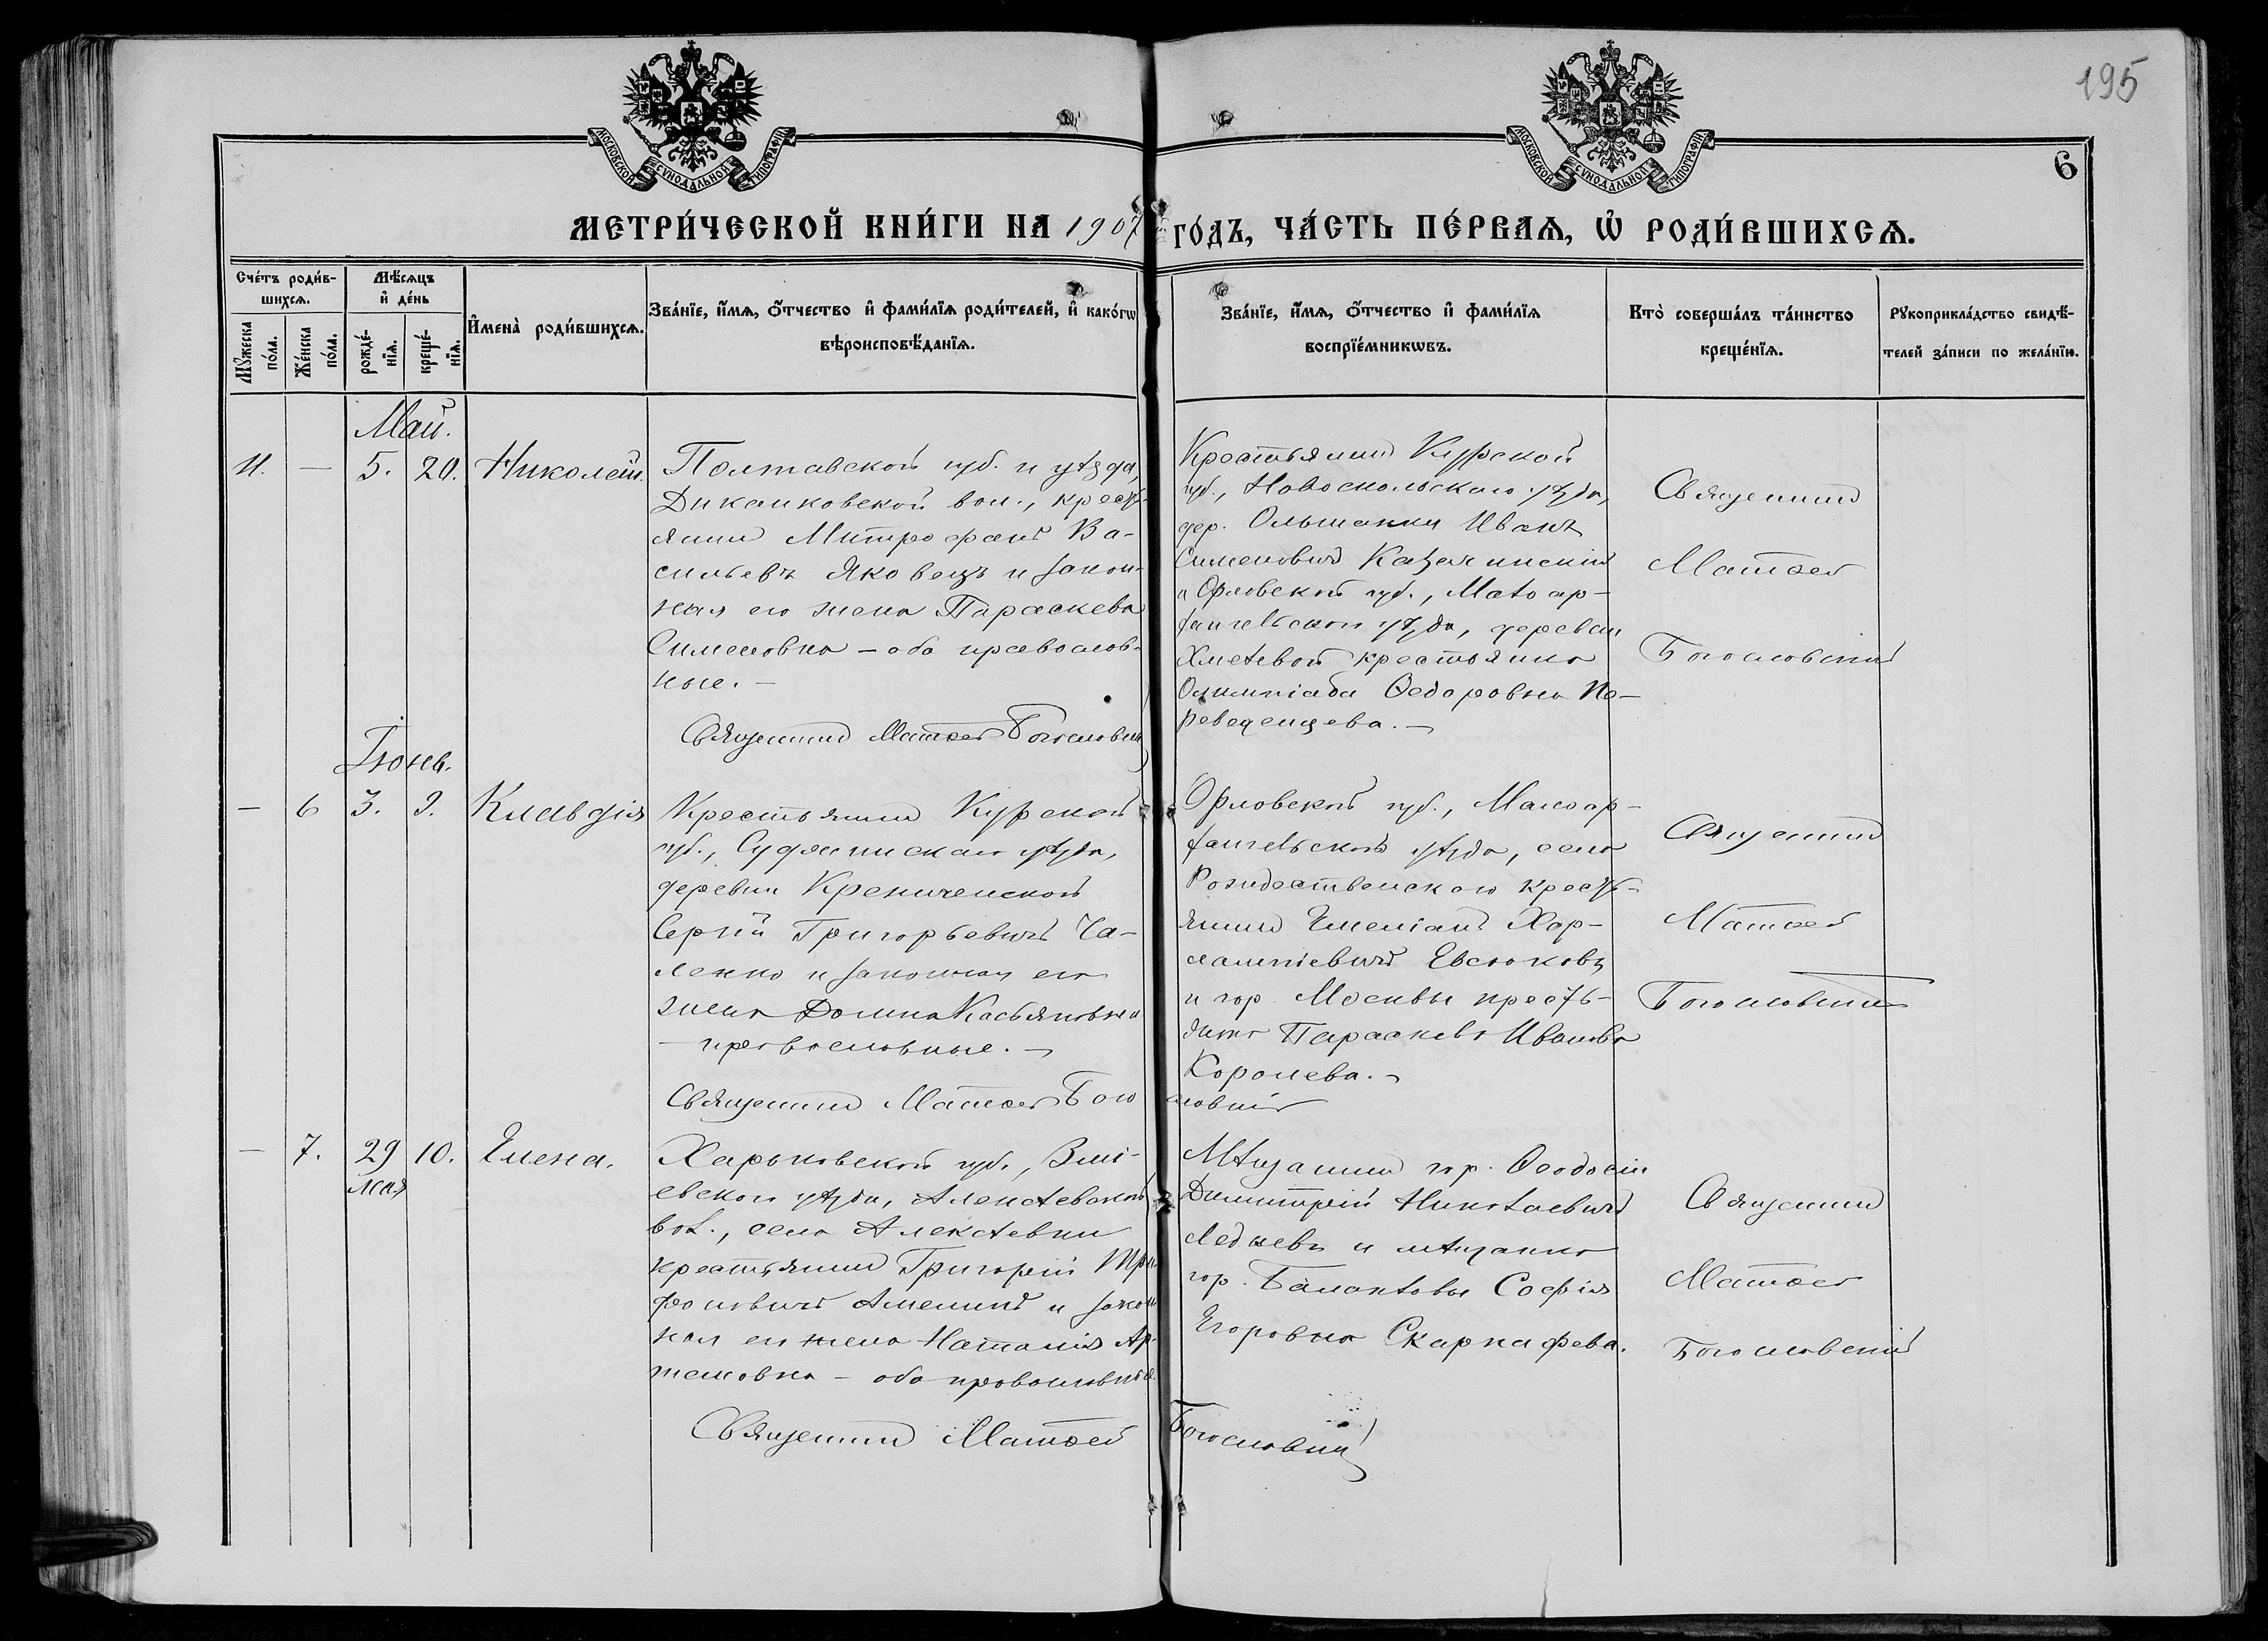 195
6
МОСКОВСКОЙ СѴНОДАЛЬНОЙ ТИПОГРАФІИ
МОСКОВСКОЙ СѴНОДАЛЬНОЙ ТИПОГРАФІИ
МЕТРИ́ЧЕСКОЙ КНИ́ГИ НА 1907 ГО́ДЪ, ЧА́СТЬ ПЕ́РВАѦ, Ѡ҆ РОДИ́ВШИХСѦ.
Сче́тъ роди́в-
шихсѧ.
Мꙋжеска по́ла.
Же́нска по́ла.
Мѣ́сѧцъ
и҆ де́нь
рожде́-
нїѧ.
креще́-
нїѧ.
И҆мена̀ роди́вшихсѧ.
Зва́нїе, и҆́мѧ, ѻ҆́тчество и҆ фами́лїѧ роди́телей, и҆ како́гѡ
вѣроисповѣ́данїѧ.
Зва́нїе, и҆́мѧ, ѻ҆́тчество и҆ фами́лїѧ
воспрїе́мникѡвъ.
Кто̀ соверша́лъ та́инство
креще́нїѧ.
Рꙋкоприкла́дство свидѣ́-
телей за́писи по жела́нїю.
Май.
— 5. 20. Николай.
Полтавской губ. и уѣзда,
Диканковской вол., кресть-
янинъ Митрофанъ Ва-
сильевъ Яковецъ и закон-
ная его жена Параскева
Симеоновна – оба православ-
ные. –
Священникъ Матѳей Богословскій
Крестьянинъ Курской
губ., Новоскольскаго уѣзда,
дер. Ольшанки Иванъ
Симеоновичъ
и Орловской губ., Малоар-
хангельскаго уѣзда, деревни
Хмѣлевой крестьянка
Олимпіада Ѳедоровна Пе-
реведенцева. –
Священникъ
Матѳей
Богословскій
Іюнь.
— 6 3. 9. Клавдія
Крестьянинъ Курской
губ., Суджанскаго уѣзда,
деревни
Сергій Григорьевичъ Ча-
ленко и законная его
жена Домна Касьяновна
– православные. –
Священникъ Матѳей Богословскій
Орловской губ., Малоар-
хангельскаго уѣзда, села
Рождественскаго кресть-
янинъ Емеліанъ Хар-
лампіевичъ Евсюковъ
и гор. Москвы кресть-
янка Параскева Иванова
Королева. –
Священникъ
Матѳей
Богословскій
— 7. 29 мая 10. Елена.
Харьковской губ., Зміе-
евскаго уѣзда, Алексѣевской
вол., села Алексѣевки
крестьянинъ Григорій Три-
фоновичъ Амелинъ и закон-
ная его жена Наталія Ар-
темовна – оба православные.
Священникъ Матѳей Богословскій
Мѣщанинъ гор. Ѳеодосіи
Димитрій Николаевичъ
Ледневъ и мѣщанка
гор. Балаклавы Софія
Егоровна
Священникъ
Матѳей
Богословскій